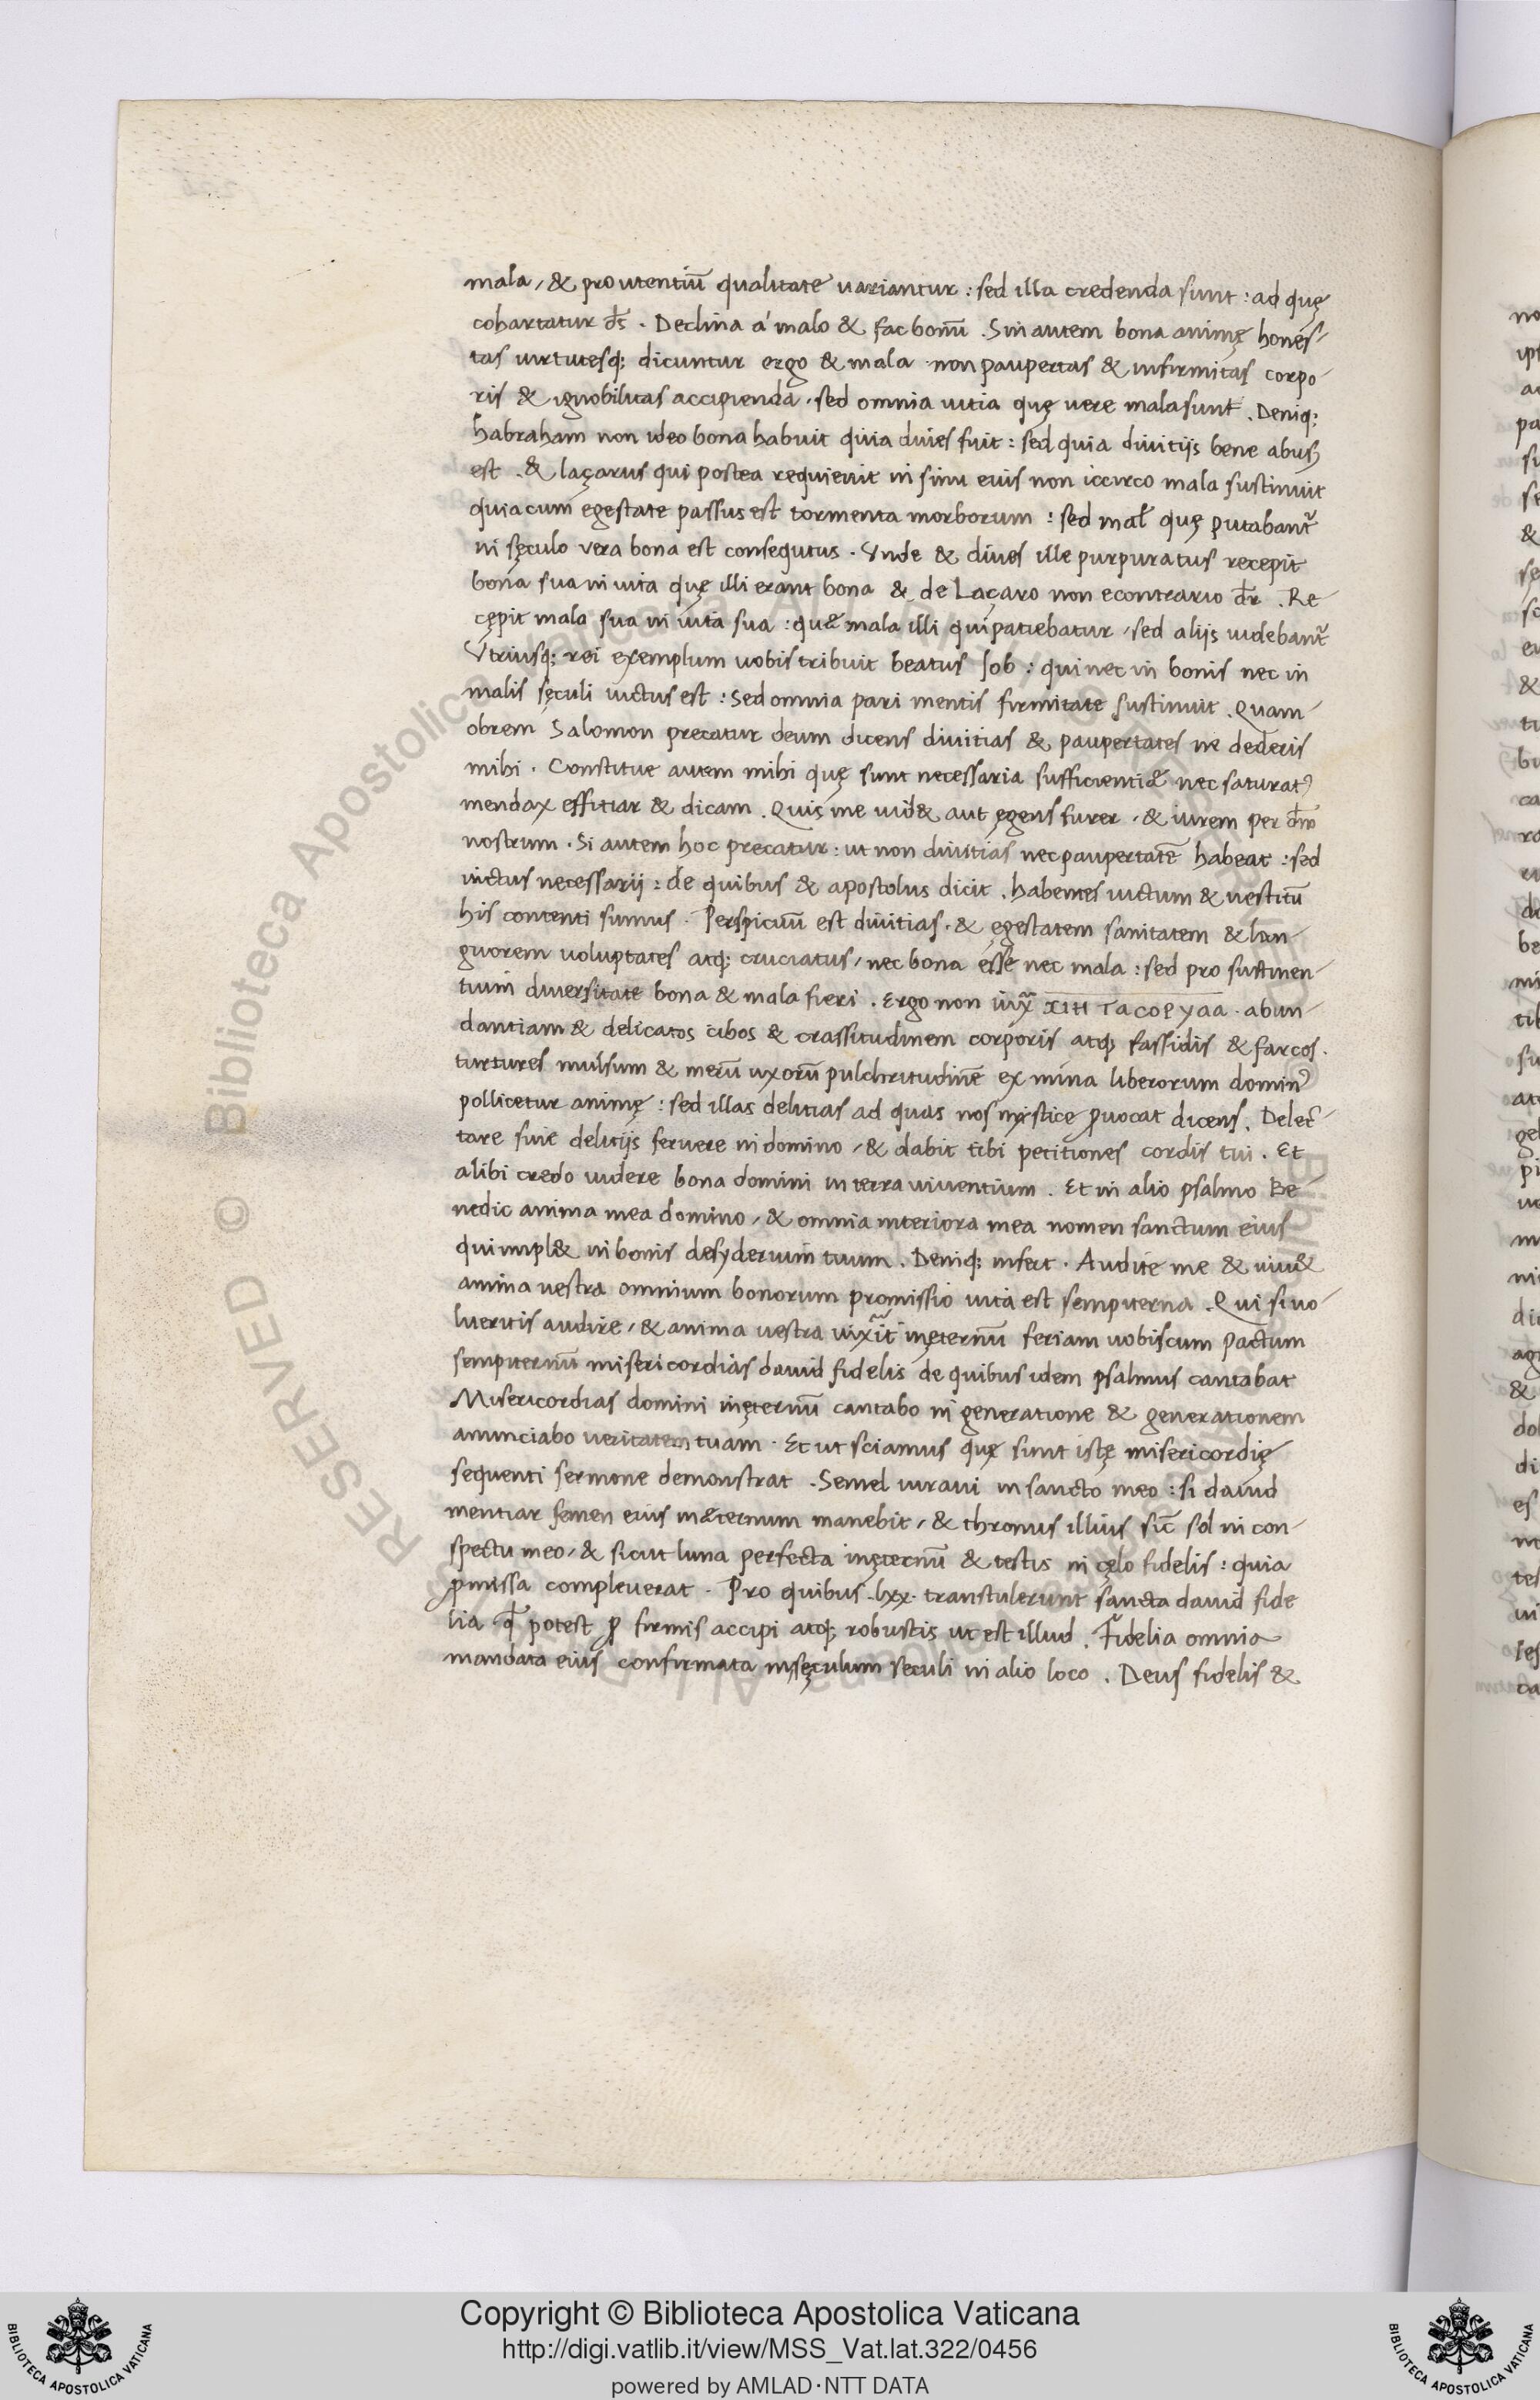 mala, & pro utentiū qualitate uariantur : sed illa credenda sunt : ad quę
cohartatur d̄s . Declina á malo & fac bonū . Sin autem bona animę hones-
tas uirtutesq; dicuntur ergo & mala non paupertas & infirmitas corpo-
ris & ignobilitas accipienda, sed omnia uitia quę uere mala sunt . Deniq;
habraham non ideo bona habuit quia diues fuit : sed quia diuitijs bene abusꝰ
est . & laçarus qui postea requieuit in sinu euis non iccirco mala sustinuit
quia cum egestate passus est tormenta morborum : sed mal̄ quę putabant᷑
in sęculo vera bona est consequtus . Vnde & diues ille purpuratus recepit
bona sua in uita quę illi erant bona & de Laçaro non econtrario d̄r . Re
cępit mala sua in uita sua : qu& mala illi qui patiebatur, sed alijs uidebant᷑
Vtriusq; rei exemplum uobis tribuit beatus Job : qui nec in bonis nec in
malis sęculi uictus est : Sed omnia pari mentis firmitate sustinuit . Quam-
obrem Salomon precatur deum dicens diuitias & paupertates ne dederis
mihi . Constitue autem mihi quę sunt necessaria sufficienti& nec saturatꝰ
mendax effitiar & dicam . Quis me uid& aut egens furer, & iurem per d̄m
nostrum . Si autem hoc precatur : ut non diuitias nec paupertatē habeat : sed
uictus necessarij : de quibus & apostolus dicit . habentes uictum & uestitū
his contenti sumus . Perspicuū est diuitias . & egestatem sanitatem & lan-
guorem uoluptates atq; cruciatus, nec bona esse nec mala : sed pro sustinen-
tium diuersitate bona & mala fieri . Ergo non
dantiam & delicatos cibos & crassitudinem corporis atq; fassidis & farcos .
turtures mulsum & merū uxorū pulchritudinē ex mina liberorum dominꝰ
pollicetur animę : sed illas delitias ad quas nos mistice ꝓuocat dicens . Delec̄-
tare suie delitijs feruere in domino, & dabit tibi petitiones cordis tui . Et
alibi credo uidere bona domini in terra uiuentium . Et in alio psalmo Be-
nedic anima mea domino, & omnia interiora mea nomen sanctum eius
qui impl& in bonis desyderium tuum . Deniq; infert . Audite me & uiu&
anima uestra omnium bonorum promissio uita est sempiterna . Qui si uo-
lueritis audire, & anima uestra uixit inęternū feriam uobiscum pactum
sempiternū misericordias dauid fidelis de quibus idem psalmus cantabat
Misericordias domini inęternū cantabo in generatione & generationem
anunciabo ueritatem tuam . Et ut sciamus quę sunt istę misericordię
sequenti sermone demonstrat . Semel iuraui in sancto meo : si dauid
mentiar semen euis in&ternum manebit, & thronus illius sic̄ sol in con-
spectu meo, & sicut luna perfecta inęternū & testis in cęlo fidelis : quia
ꝓmissa compleuerat . Pro quibus .lxx. transtulerunt sancta dauid fide
lia qd̄ potest ꝓ firmis accipi atq; robustis ut est illud . Fidelia omnia
mandata eius confirmata insęculum seculi in alio loco . Deus fidelis &
Copyright © Biblioteca Apostolica Vaticana
http://digi.vatlib.it/view/MSS_Vat.lat.322/0456
powered by AMLAD·NTT DATA
BIBLIOTECA APOSTOLICA VATICANA
BIBLIOTECA APOSTOLICA VATICANA